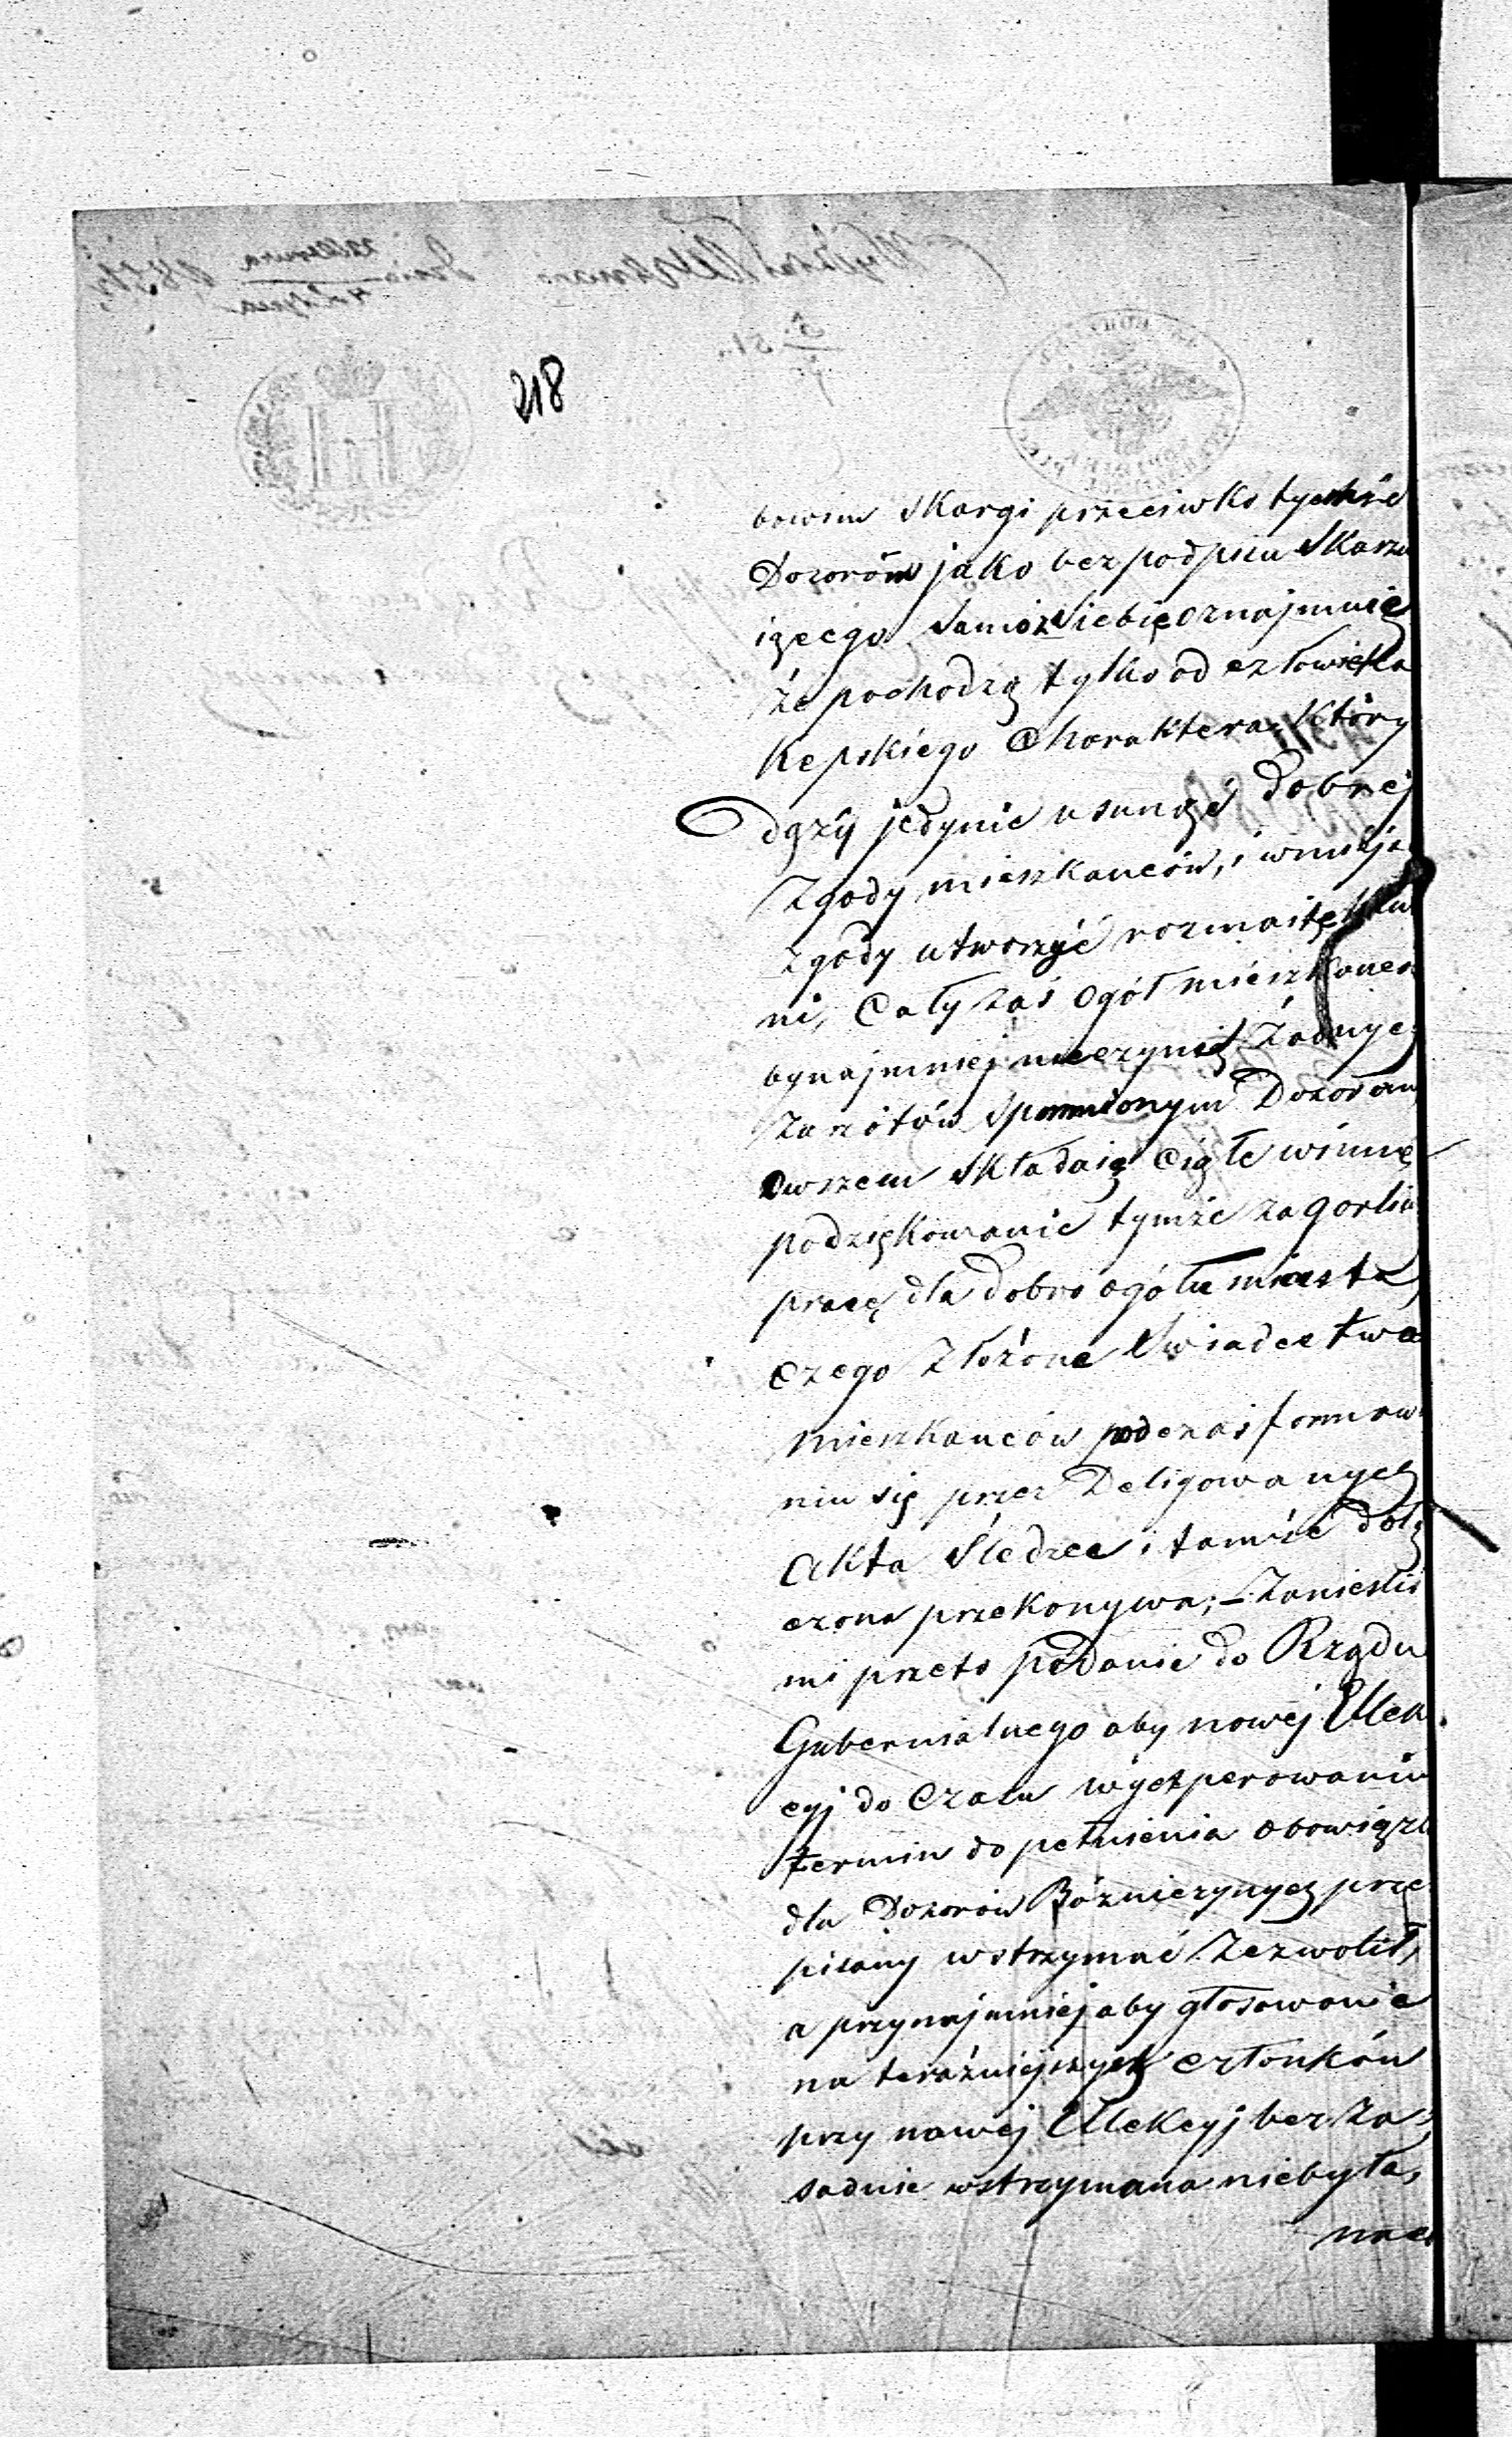 218
bowim Skargi przeciwko tychże
Dozorów jako bez podpisu Skarżu
iącego samoż siebie oznajmuią
że pochodzą tylko od człowieka
Kepskiego Charaktera, Który
dąży jedynie usunąć dobrej
Zgody mieszkańców, i wmiejsc
zgody utworzyć rozmaite
ni, Cały zaś Ogół mieszkańców
bynajmniej nieczynią Żadnych
Zarzótów spomnionym Dozorom
Owszem Składaią Ciągłe winne
podziękowanie tymże za gorliw
pracę dla dobro ogółu miasta,
czego Złożone Swiadectwa
Mieszkańców podczas formow
niu się przez Deligowanych
Akta Śledzcze i tamże dołą
czone przekonywa; – Zanieśliś
mi przeto podanie do Rządu
Gubernialnego aby nowej Ellek
cyj do Czasu wyexperowaniu
termin do pełnienia obowiązk
dla Dozorów Bóżniczynych prze
pisany wstrzymać Zezwolił,
a przynajmniej aby głosowanie
na teraźniejszych członków
przy nowej Ellekcyj bez za
sadnie wstrzymana niebyła,